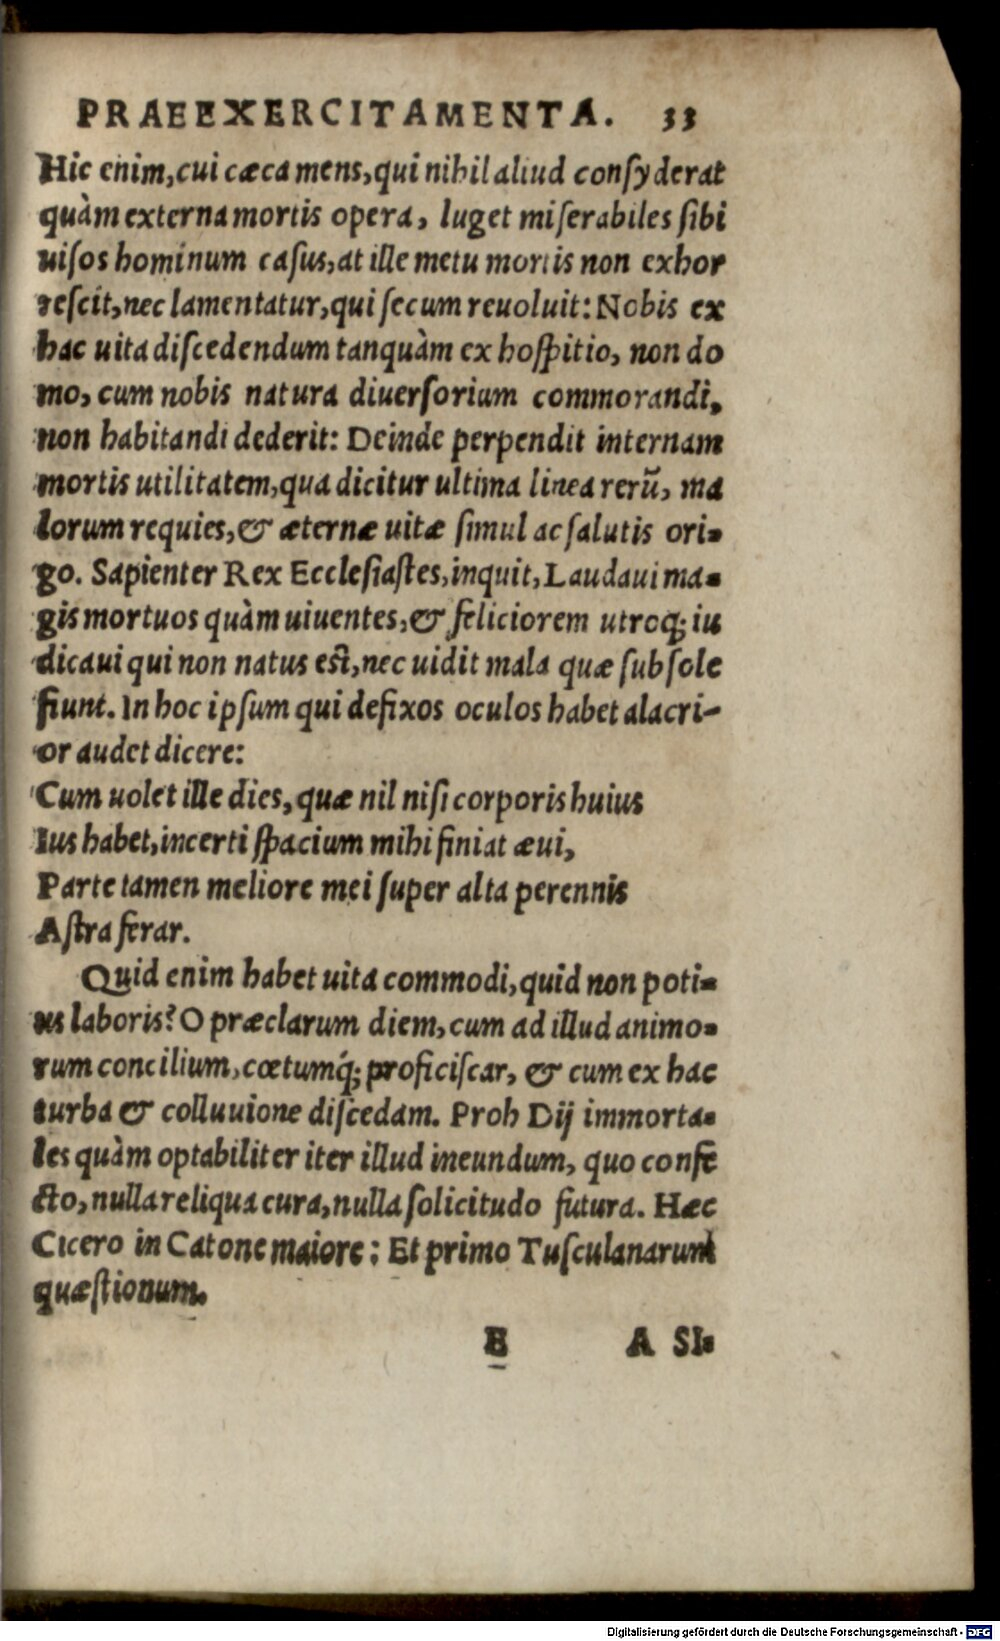 PRAEEXERCITAMENTA. 33
Hic enim, cui cæca mens, qui nihil aliud consyderat
quàm externa mortis opera, luget miserabiles sibi
uisos hominum casus, at ille metu mortis non exhor
rescit, nec lamentatur, qui secum reuoluit: Nobis ex
hac uita discedendum tanquàm ex hospitio, non do
mo, cum nobis natura diuersorium commorandi,
non habitandi dederit: Deinde perpendit internam
mortis utilitatem, qua dicitur ultima linea rerū, ma
lorum requies, & æternæ uitæ simul ac salutis ori-
go. Sapienter Rex Ecclesiastes, inquit, Laudaui ma-
gis mortuos quàm uiuentes, & feliciorem utroq; iu
dicaui qui non natus est, nec uidit mala quæ sub sole
fiunt. In hoc ipsum qui defixos oculos habet alacri-
or audet dicere:
Cum uolet ille dies, quæ nil nisi corporis huius
Ius habet, incerti spacium mihi finiat æui,
Parte tamen meliore mei super alta perennis
Astra ferar.
Quid enim habet uita commodi, quid non poti-
us laboris? O præclarum diem, cum ad illud animo-
rum concilium, cœtumq́; proficiscar, & cum ex hac
turba & colluuione discedam. Proh Dij immorta-
les quàm optabiliter iter illud ineundum, quo confe
cto, nulla reliqua cura, nulla solicitudo futura. Hæc
Cicero in Catone maiore: Et primo Tusculanarum
quæstionum.
E A SI-
Digitalisierung gefördert durch die Deutsche Forschungsgemeinschaft - DFG